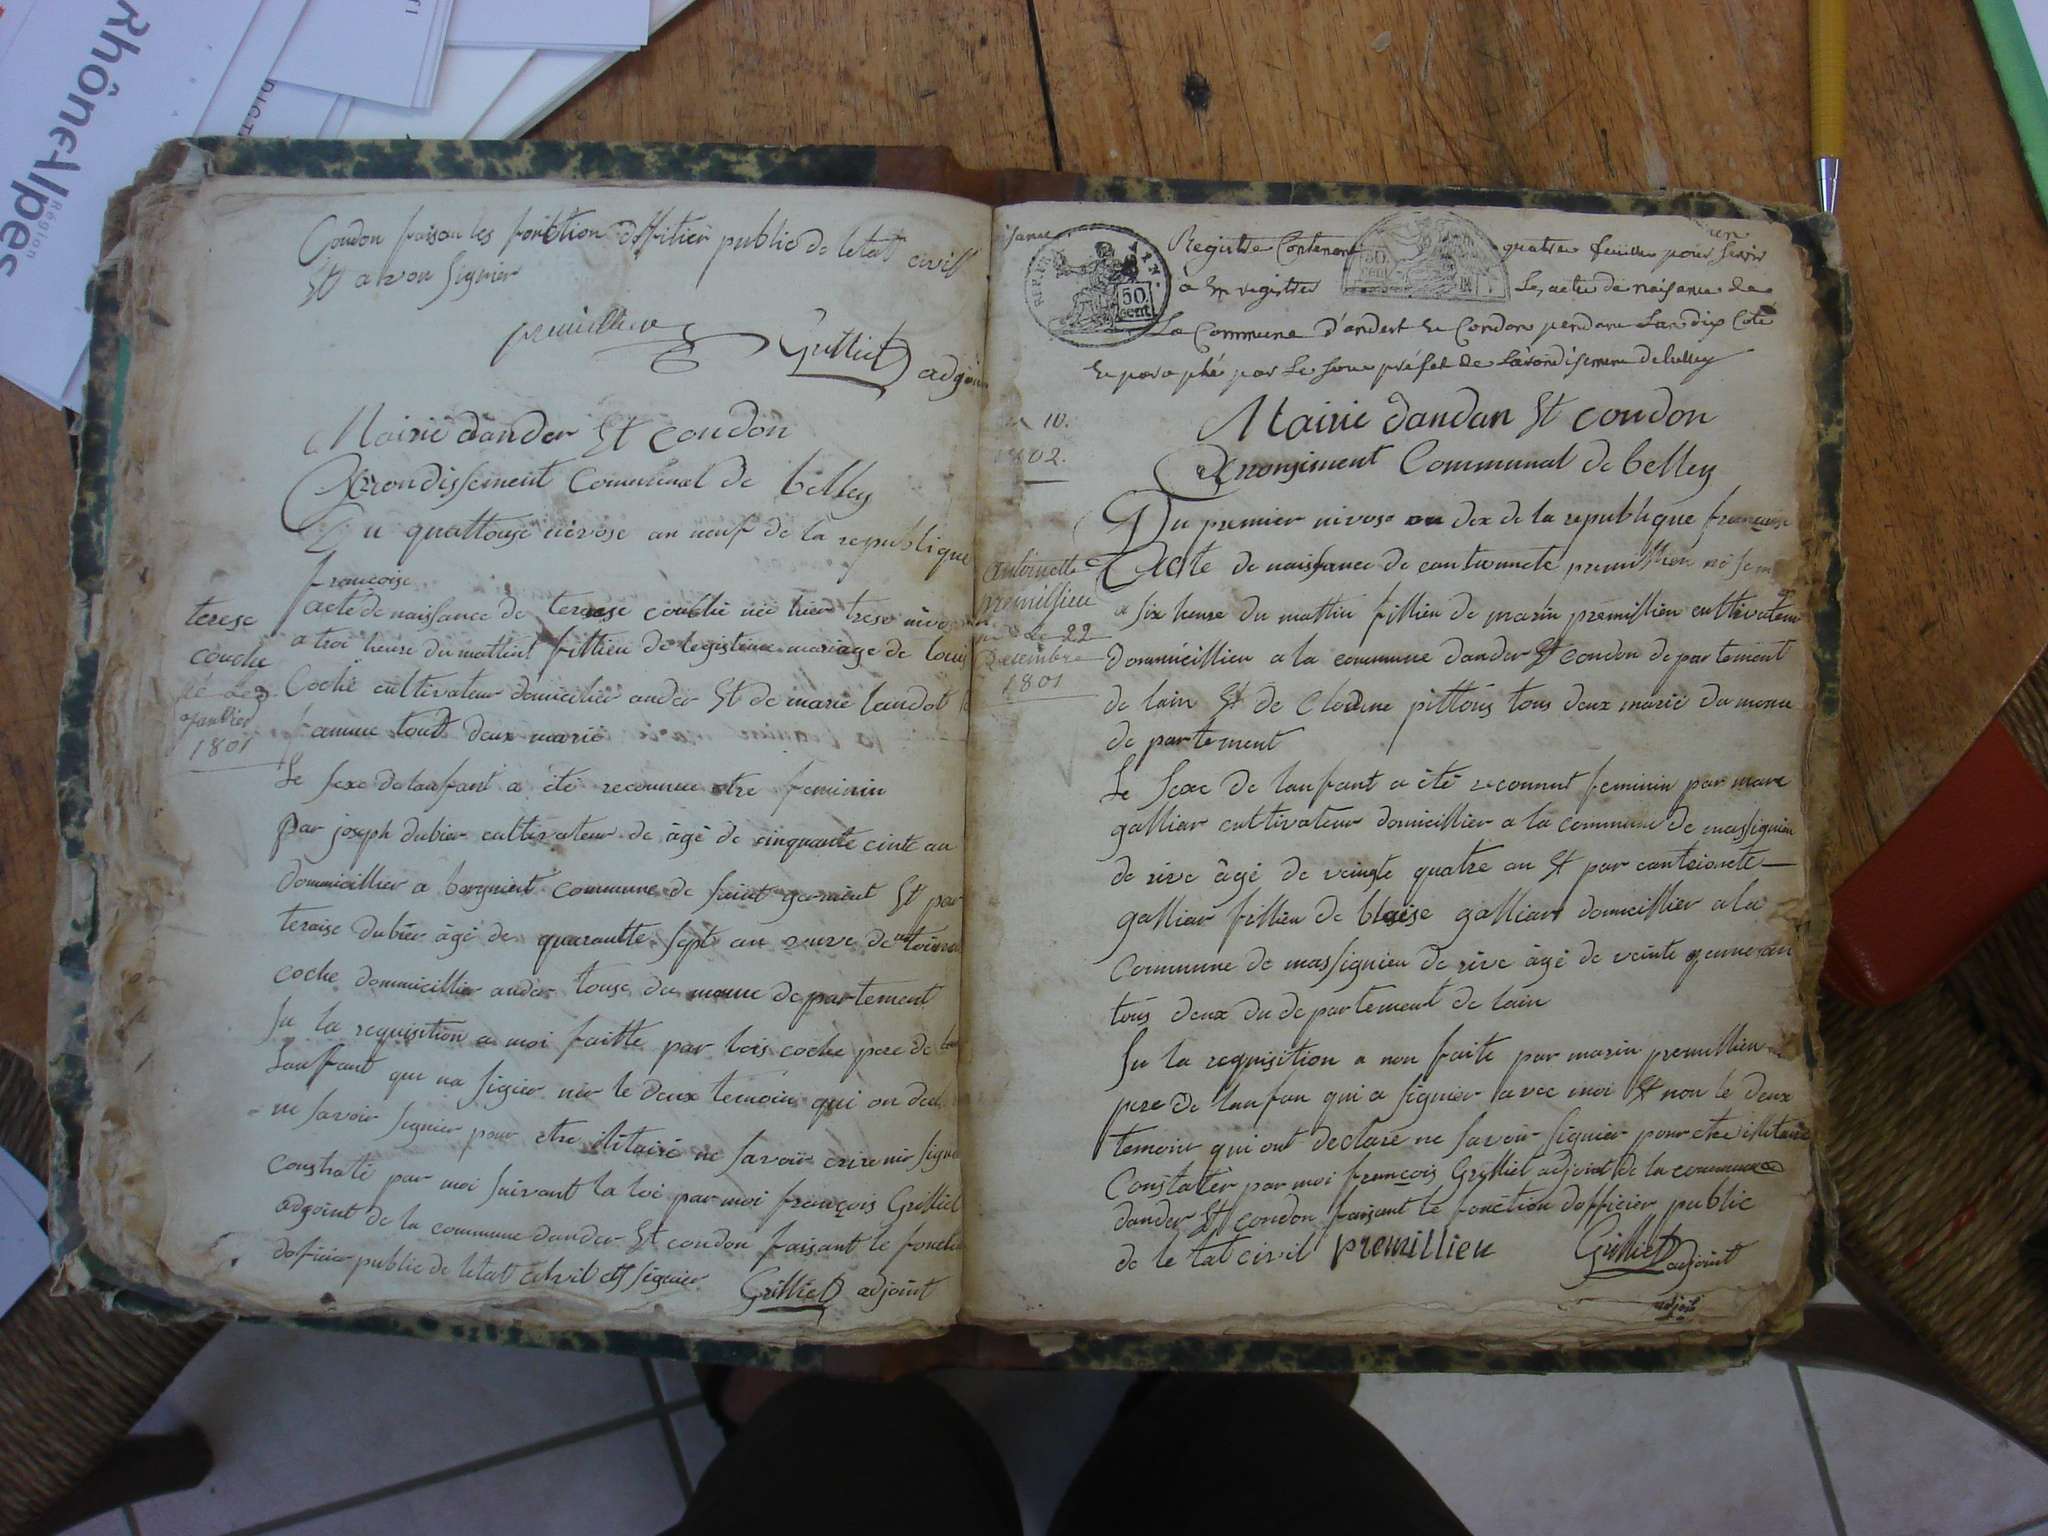 Rhône Alpes
Région
Condon faison les fonction doffitier public de letat civill
Et avon signier
premillieu
Grilliet adjoin
Mairie dander Et condon
Arrondissement Communal de belley
Du quattorse nivose an neuf de la republique
françoise
acte de naissance de terese couche née hier trese nivose
a troi heure du mattint fillieu de legistime mariage de loui
Coche cultivateur domicilier ander Et de marie landot
famme tout deux marié
Le sexe de lanfant a été reconnue etre feminin
Par joseph dubier cultivateur de âgé de cinquante cinte an
dommicillier a bognient commune de saint germient Et par
teraise dubier âgé de quarantte sept an veuve de
coche dommicillier ander touse du meme departement
Su la requisition a moi faitte par lois coche pere de
Lanfant qui na signier nir le deux temoin qui on decl
ne savoir signier pour etre ilitairé ne savoir crire nir signe
Constraté par moi suivant la loi par moi françois Grilliet
adjoint de la commune dander Et condon faisant le fonction
doficier public de letat cihvil et signier Grilliet adjoint
terese
couche
né le 3
janvier
1801
Registre Contenant quatre feuilles pour servir
a Enregistrer Les actes de naisance de
La Commune d'andert Et Condon pendant Lan dix Coté
Et paraphé par Le sous préfet de Larondisement de belley
50
cent
10.
1802.
Mairie dandan Et condon
Arronsiment Communal de belley
Du premier nivose an dix de la republique françoise
Acte de naissance de
a six heure du mattin fillieu de marin premillieu cultivateur
dommicillieu a la commune dander Et condon departement
de lain Et de Clodine pittons tous deux marié du meme
departement
Le Sexe de lanfant a été reconnut feminin par marc
galliar cultivateur domicillier a la commune de massignieu
de rive âgé de veingte quatre an Et par
galliar fillieu de blaise galliar domicillier a la
Commune de massignieu de rive âgé de veinte an
tous deux du departement de lain
Su la requisition a moi faite par marin premillieu
pere de lanfan qui a signier avec moi Et non le deux
temoin qui ont declaré ne savoir signier pour etre
Constater par moi françois Grilliet adjoint de la commune
dander Et condon faisant le fonction dofficier public
de le tat civil premillieu Grilliet adjoint
antoinette
premillieu
né Le 22
Decembre
1801